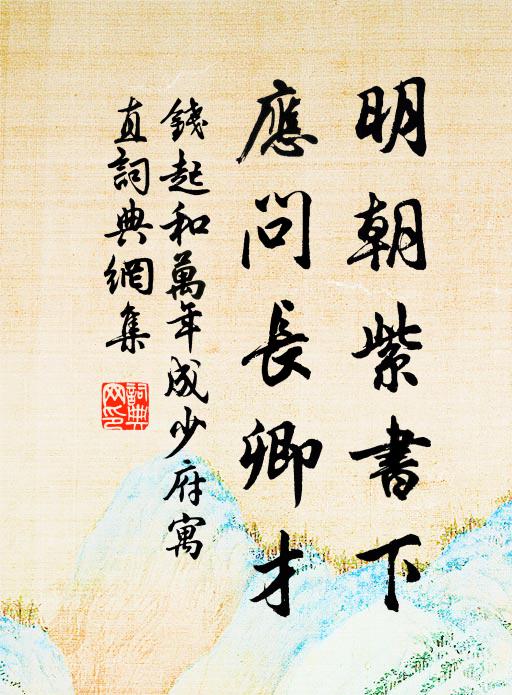 明朝紫書下
應問長卿才
錢起和萬年成少府寓
直詞典網集
詞典
网印